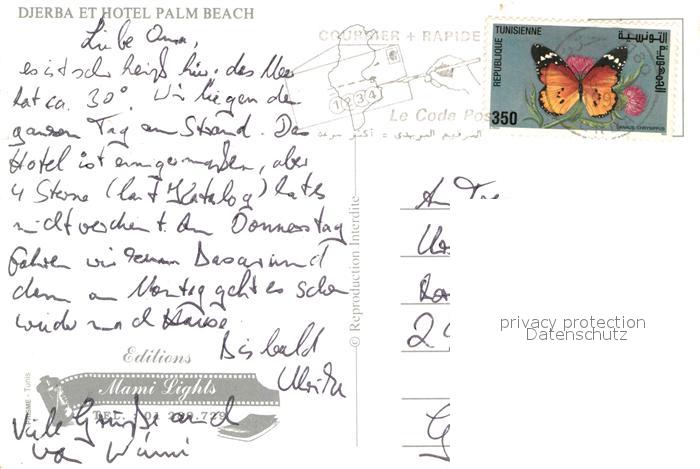 DJERBA ET HOTEL PALM BEACH
Liebe Oma,
es ist sehr heiß hier, das Meer
hat ca. 30°. Wir liegen den
ganzen Tag am Strand. Das
Hotel ist einigermaßen, aber
4 Sterne (laut Katalog) hat es
nicht verdient. Am Donnerstag
fahren wir zum Basar und
dann am Montag geht es schon
wieder nach Hause.
Bis bald
Ulrike
Viele Grüße auch
von Winni
Editions
Mami Lights
TEL. : 01 289.729
PRISME - Tunis
© Reproduction Interdite
COURRIER + RAPIDE
1 2 3 4
Le Code Pos
الترقيم البريدي = أكثر سرعة
REPUBLIQUE TUNISIENNE
الجمهورية التونسية
350
DANAUS CHRYSIPPUS
An
2
G
privacy protection
Datenschutz